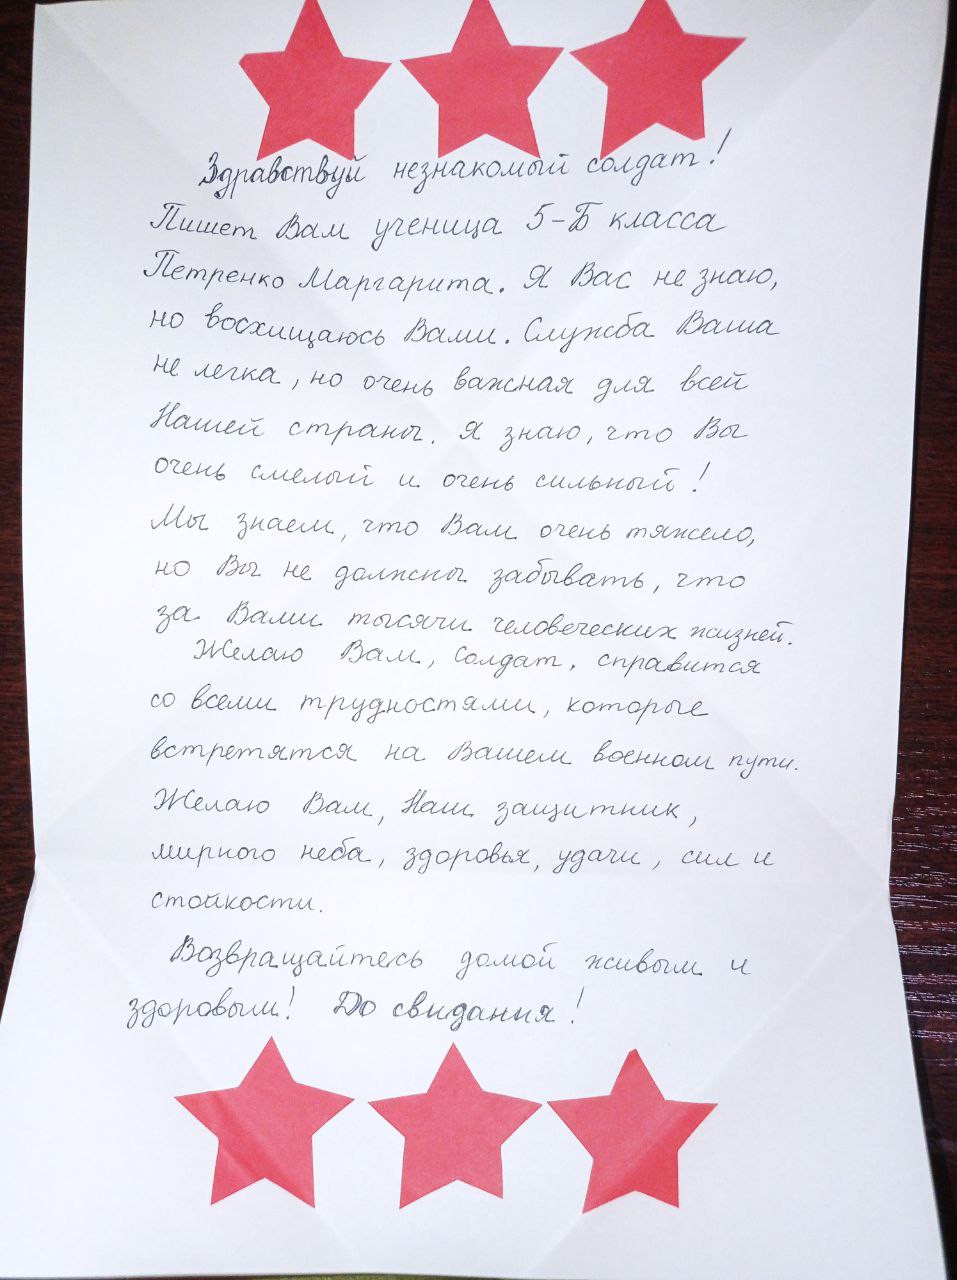 Здравствуй незнакомый солдат!
Пишет Вам ученица 5-Б класса
Петренко Маргарита. Я Вас не знаю,
но восхищаюсь Вами. Служба Ваша
не легка, но очень важная для всей
Нашей страны. Я знаю, что Вы
очень смелый и очень сильный!
Мы знаем, что Вам очень тяжело,
но Вы не должны забывать, что
за Вами тысячи человеческих жизней.
Желаю Вам, солдат, справится
со всеми трудностями, которые
встретятся на Вашем военном пути.
Желаю Вам, Наш защитник,
мирного неба, здоровья, удачи, сил и
стойкости.
Возвращайтесь домой живым и
здоровым! До свидания!